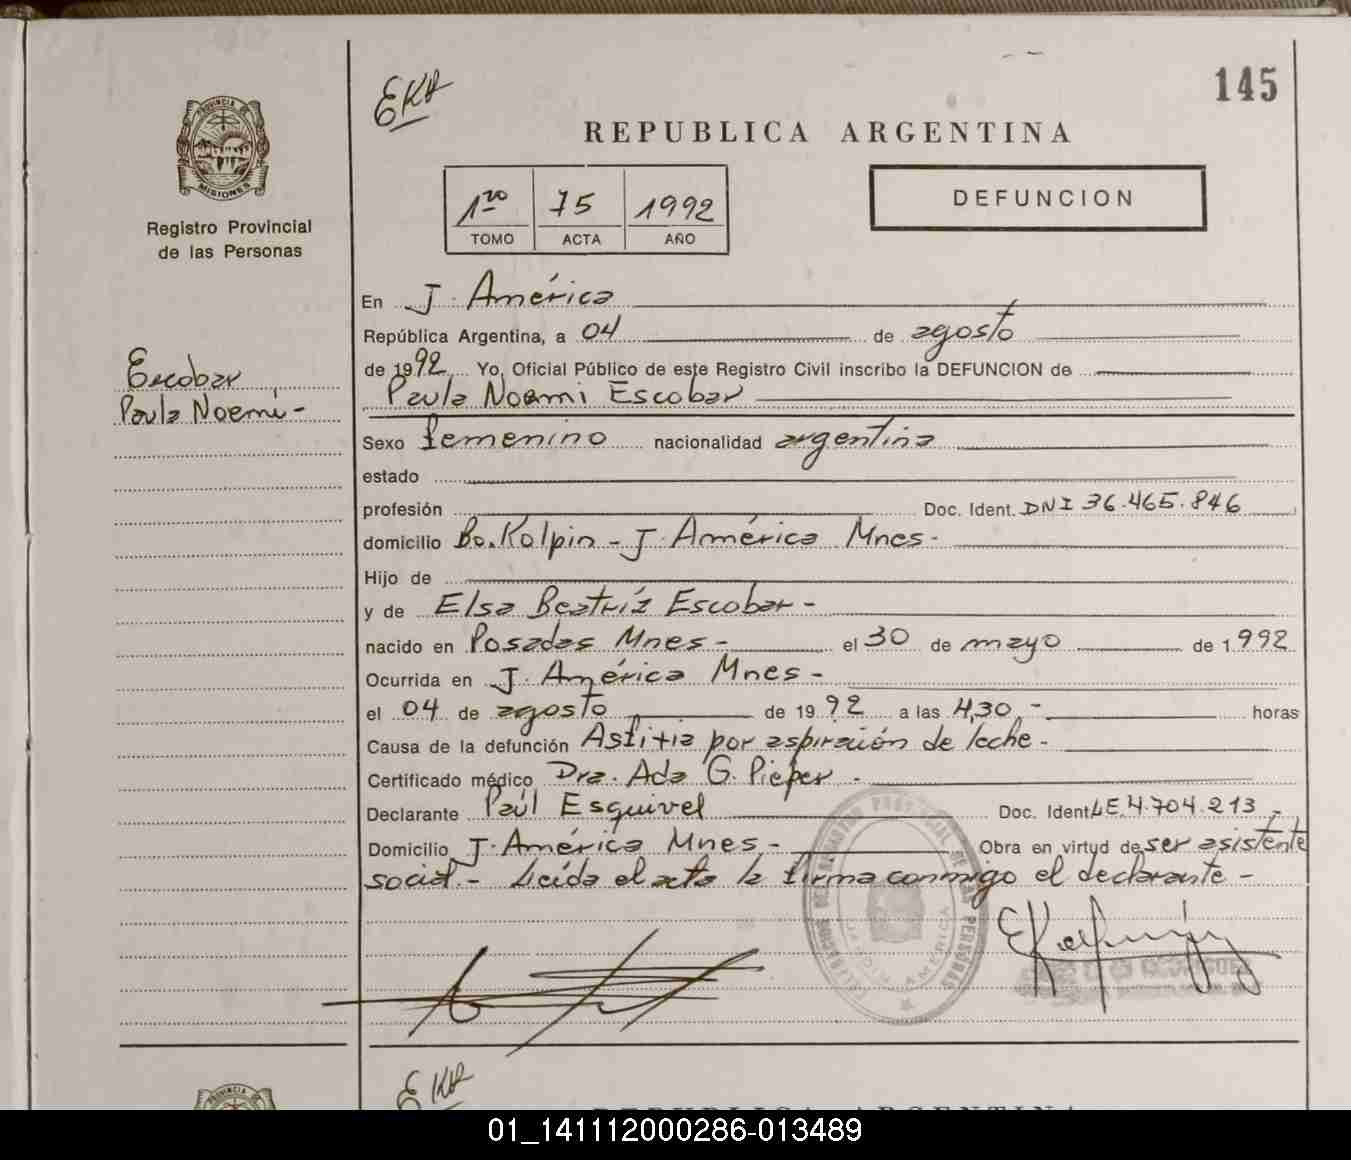 EKA
145
REPUBLICA ARGENTINA
PROVINCIA DE MISIONES
Registro Provincial
de las Personas
1ro 75 1992
TOMO ACTA AÑO
DEFUNCION
En J. América
República Argentina, a 04 de agosto
de 1992 Yo, Oficial Público de este Registro Civil inscribo la DEFUNCION de
Paula Noemi Escobar
Escobar
Paula Noemi-
Sexo femenino nacionalidad argentina
estado
profesión Doc. Ident. DNI 36.465.846
domicilio Bo. Kolpin - J. América Mnes-
Hijo de
y de Elsa Beatríz Escobar-
nacido en Posadas Mnes- el 30 de mayo de 1992
Ocurrida en J. América Mnes-
el 04 de agosto de 1992 a las 4,30,- horas
Causa de la defunción Asfitia por aspiración de leche-
Certificado médico Dra. Ada G. Pieper.
Declarante Paúl Esquivel Doc. Ident LE.4.704.213,-
Domicilio J. América Mnes,- Obra en virtud de ser asistente
social.- Leída el acta la firma conmigo el declarante-
REGISTRO PROVINCIAL DE LAS PERSONAS
JARDIN AMERICA
EKA
PROVINCIA
REPUBLICA ARGENTINA
01_141112000286-013489